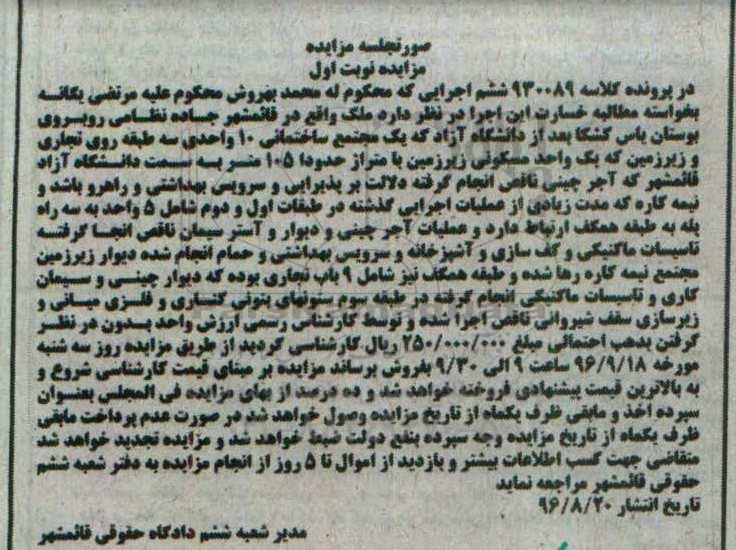 صورتجلسه مزایده
مزایده نوبت اول
در پرونده کلاسه ۹۳۰۰۸۹ ششم اجرایی که محکوم له محمد بهروش محکوم علیه مرتضی یگانه
بخواسته مطالبه خسارت این اجرا در نظر دارد ملک واقع در قائمشهر جاده نظامی روبروی
بوستان یاس کشکا بعد از دانشگاه آزاد که یک مجتمع ساختمانی ۱۰ واحدی سه طبقه روی تجاری
و زیرزمین که یک واحد مسکونی زیرزمین با متراژ حدودا ۱۰۵ متر به سمت دانشگاه آزاد
قائمشهر که آجر چینی ناقص انجام گرفته دلالت بر پذیرایی و سرویس بهداشتی و راهرو باشد و
نیمه کاره که مدت زیادی از عملیات اجرایی گذشته در طبقات اول و دوم شامل ۵ واحد به سه راه
پله به طبقه همکف ارتباط دارد و عملیات آجر چینی و دیوار و آستر سیمان ناقص انجا گرفته
تاسیسات ماکنیکی و کف سازی و آشپزخانه و سرویس بهداشتی و حمام انجام شده دیوار زیرزمین
مجتمع نیمه کاره رها شده و طبقه همکف نیز شامل ۹ باب تجاری بوده که دیوار چینی و سیمان
کاری و تاسیسات ماکنیکی انجام گرفته در طبقه سوم ستونهای بتونی کناری و فلزی میانی و
زیرسازی سقف شیروانی ناقص اجرا شده و توسط کارشناس رسمی ارزش واحد بدون در نظر
گرفتن بدهی احتمالی مبلغ ۲۵۰/۰۰۰/۰۰۰ ریال کارشناسی گردید از طریق مزایده روز سه شنبه
مورخه ۹۶/۹/۱۸ ساعت ۹ الی ۹/۳۰ بفروش برساند مزایده بر مبنای قیمت کارشناسی شروع و
به بالاترین قیمت پیشنهادی فروخته خواهد شد و ده درصد از بهای مزایده فی المجلس بعنوان
سپرده اخذ و مابقی ظرف یکماه از تاریخ مزایده وصول خواهد شد در صورت عدم پرداخت مابقی
ظرف یکماه از تاریخ مزایده وجه سپرده بنفع دولت ضبط خواهد شد و مزایده تجدید خواهد شد
متقاضی جهت کسب اطلاعات بیشتر و بازدید از اموال تا ۵ روز از انجام مزایده به دفتر شعبه ششم
حقوقی قائمشهر مراجعه نماید
تاریخ انتشار ۹۶/۸/۲۰
مدیر شعبه ششم دادگاه حقوقی قائمشهر